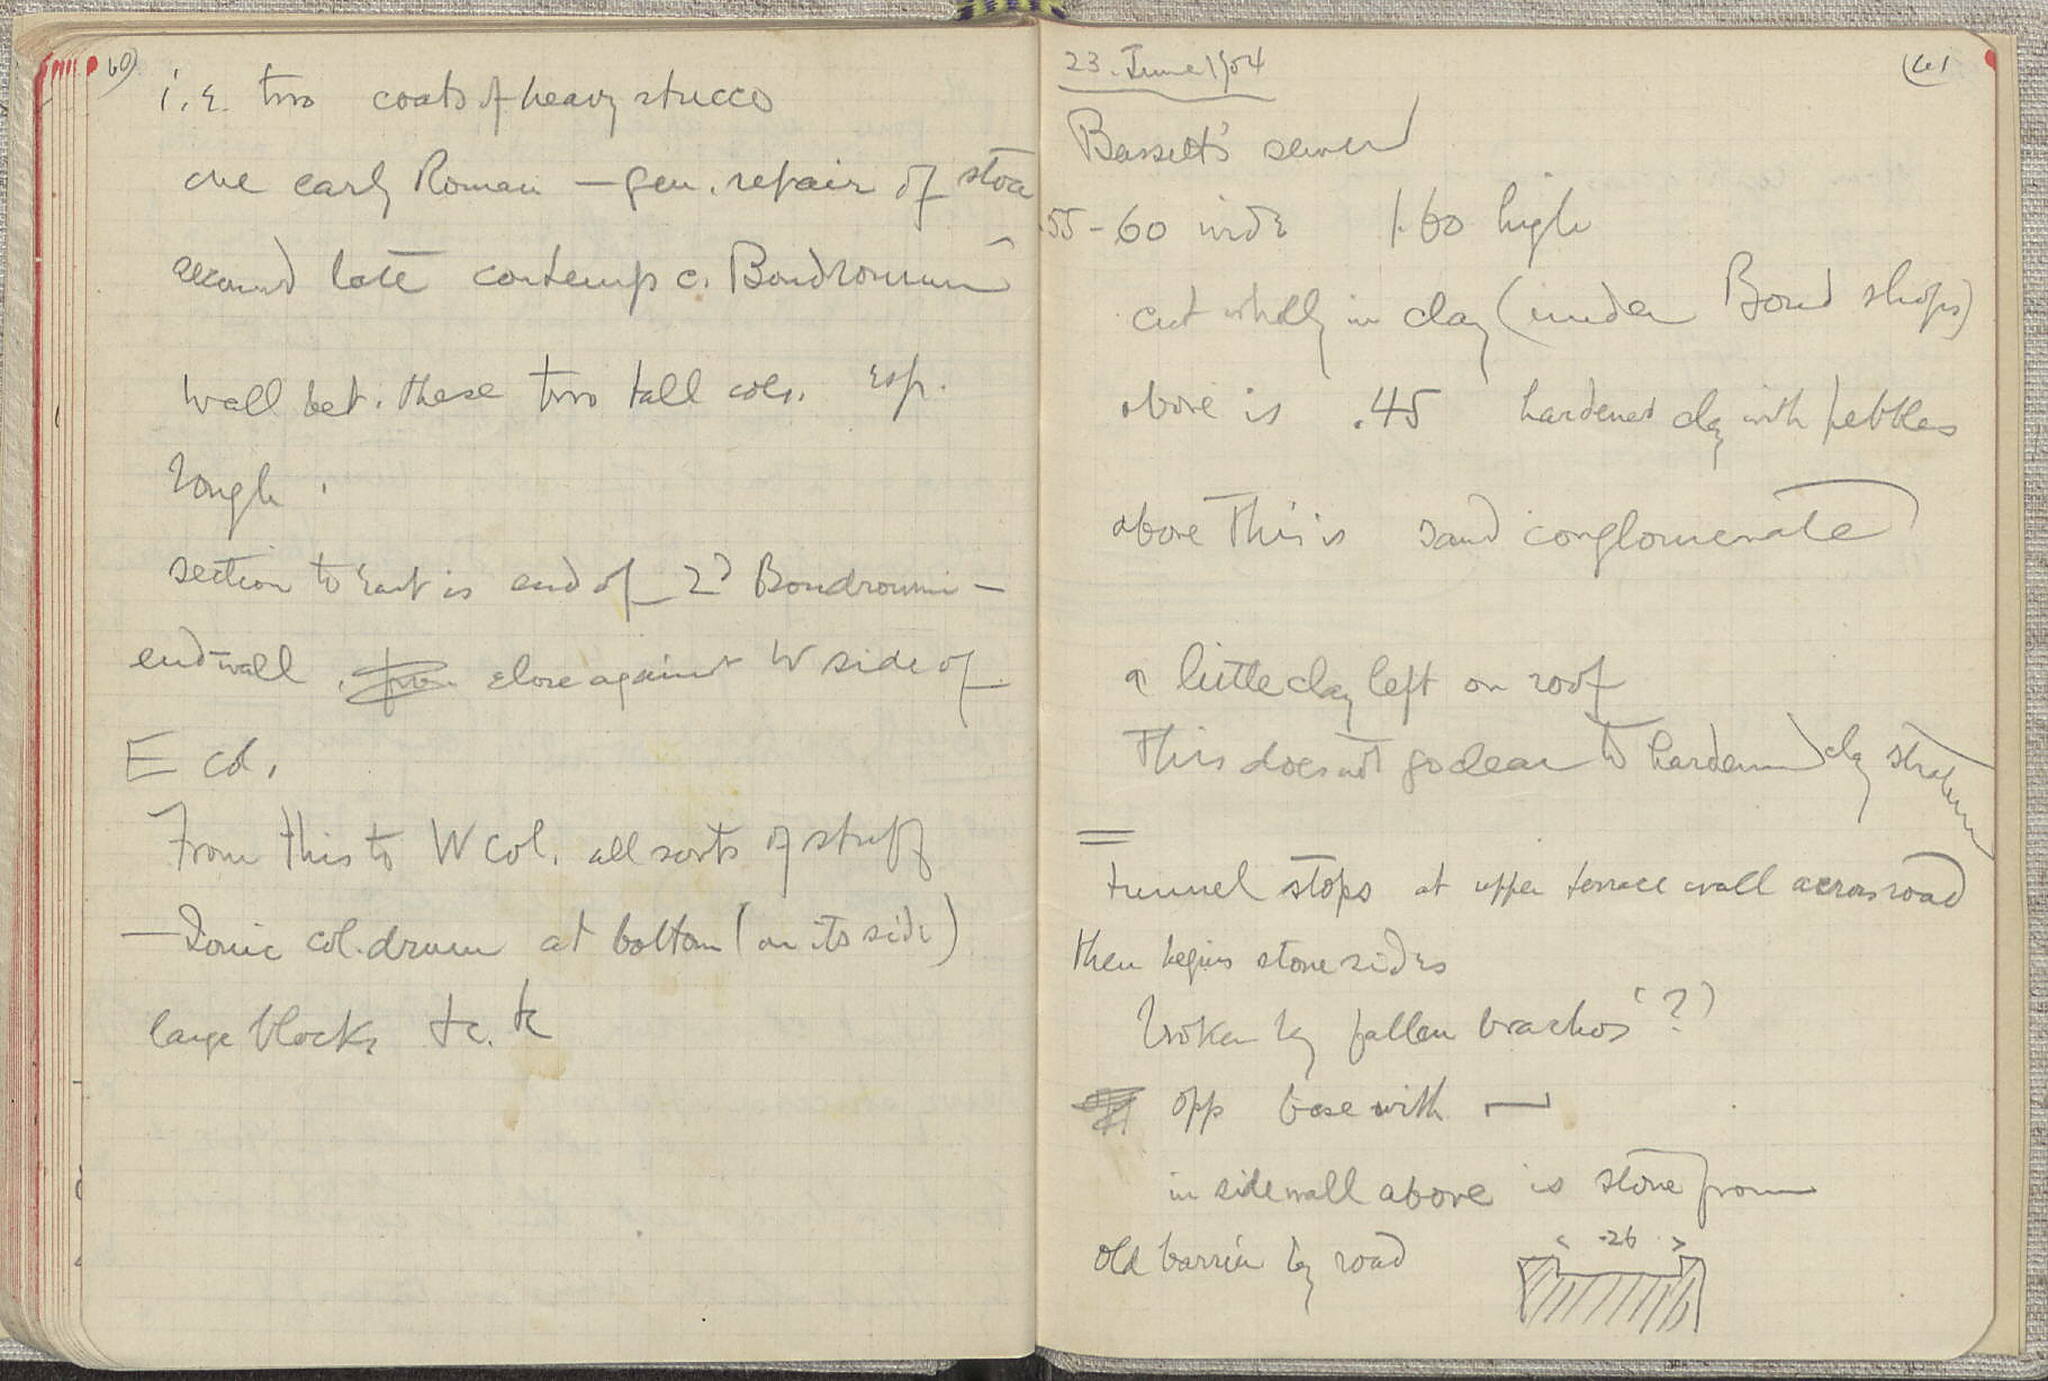 60)
i.e. two coats of heavy stucco
one early Roman — gen. repair of stoa
second late contemp c. Boudroumi
wall bet. these two tall cols. esp.
rough.
section to East is end of 2d Boudroumi —
end wall. close against W side of
E col.
From this to W col. all sorts of stuff
— Ionic col. drum at bottom (on its side)
large blocks &c. &c
23. June 1904
(61
Bassett's sewer
.55-60 wide 1.60 high
cut wholly in clay (under Boud shops)
above is .45 hardened clay with pebbles
above this is sand conglomerate
a little clay left on roof
This does not go clear to hardened clay stratum
tunnel stops at upper terrace wall across road
then begins stone sides
broken by fallen brachos (?)
opp base with
in side wall above is stone from
old barrier by road
.26